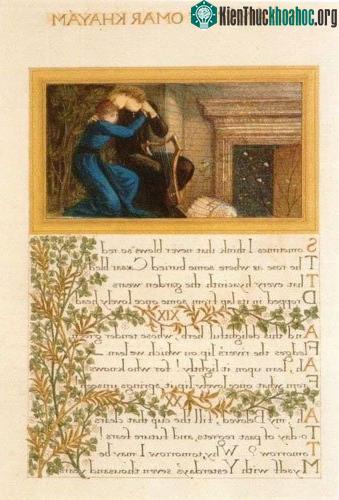 KienThuckhoahoc.org
OMAR KHAYÁM
Sometimes I think that never blows so red
The rose as where some buried Cæsar bled
That every hyacinth the garden wears
Dropped in its lap from some once lovely head
XIX
And this delightful herb, whose tender green
Fledges the river's lip on which we lean —
Ah, lean upon it lightly! for who knows
From what once lovely lip it springs unseen
XX
Ah, my Belovèd, fill the cup that clears
To-day of past regrets, and future fears!
Tomorrow? Why, Tomorrow I may be
Myself with Yesterday's seven thousand years